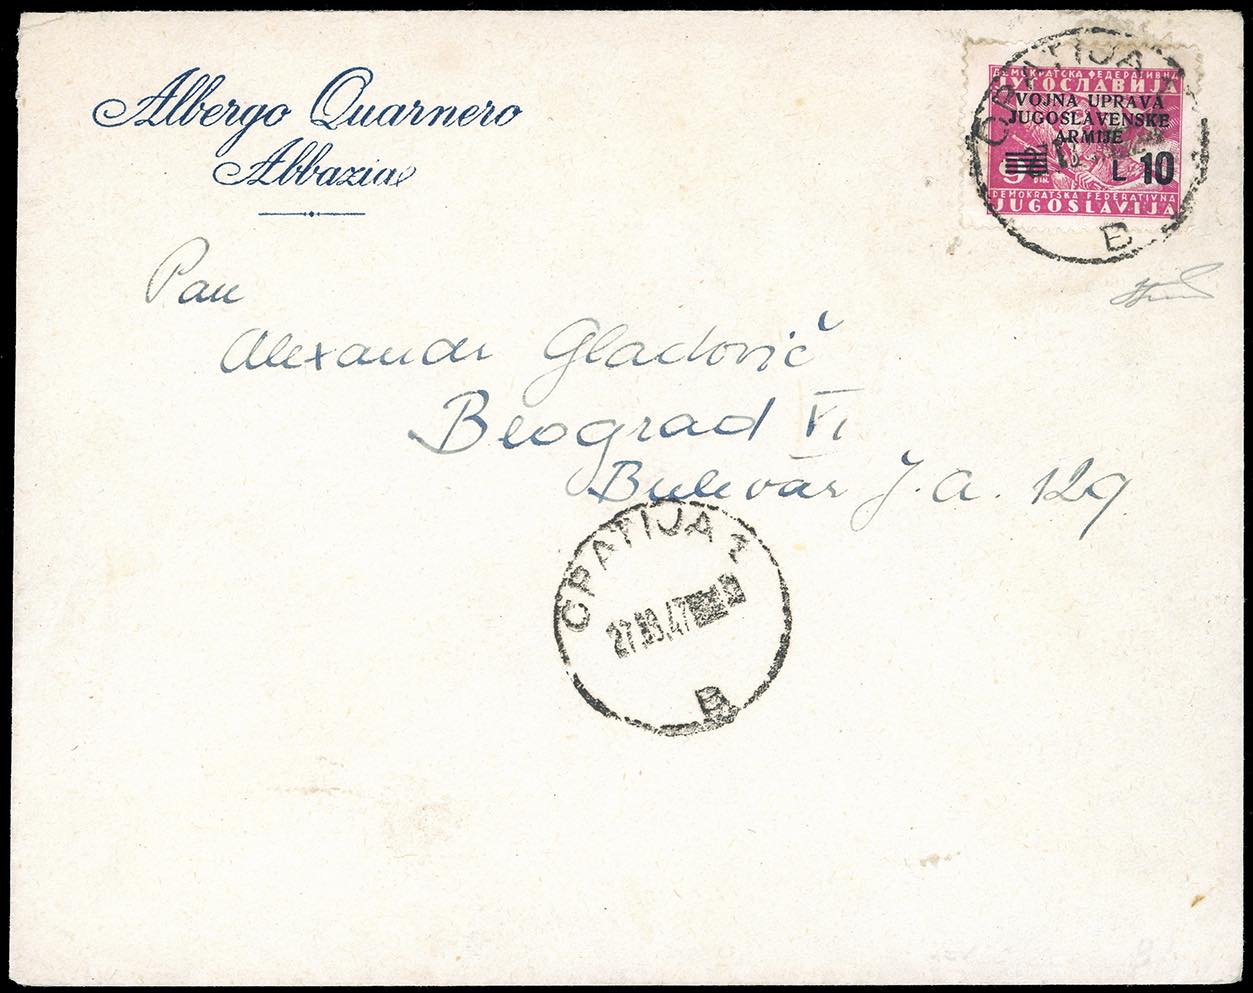 Albergo Quarnero
Abbazia
ДЕМОКРАТСКА ФЕДЕРАТИВНА
ЈУГОСЛАВИЈА
VOJNA UPRAVA
JUGOSLAVENSKE
ARMIJE
9 DIN. L 10
DEMOKRATSKA FEDERATIVNA
JUGOSLAVIJA
OPATIJA 1
B
Pan
Alexandr Gladovič
Beograd VI
Bulevár J.A. 129
OPATIJA 1
27.
.47
B